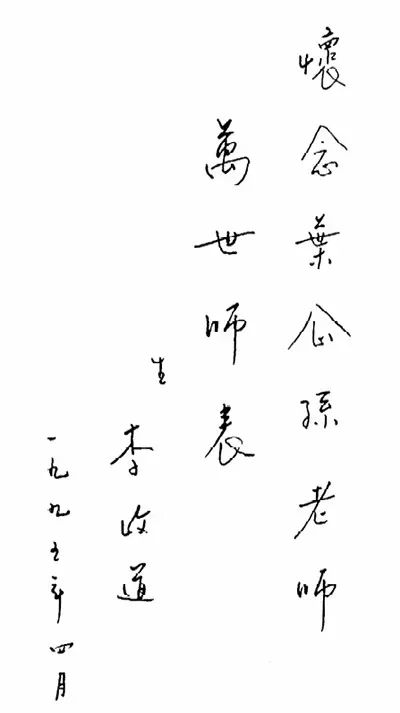 懷念葉企孫老師
萬世師表
生 李政道
一九九五年四月